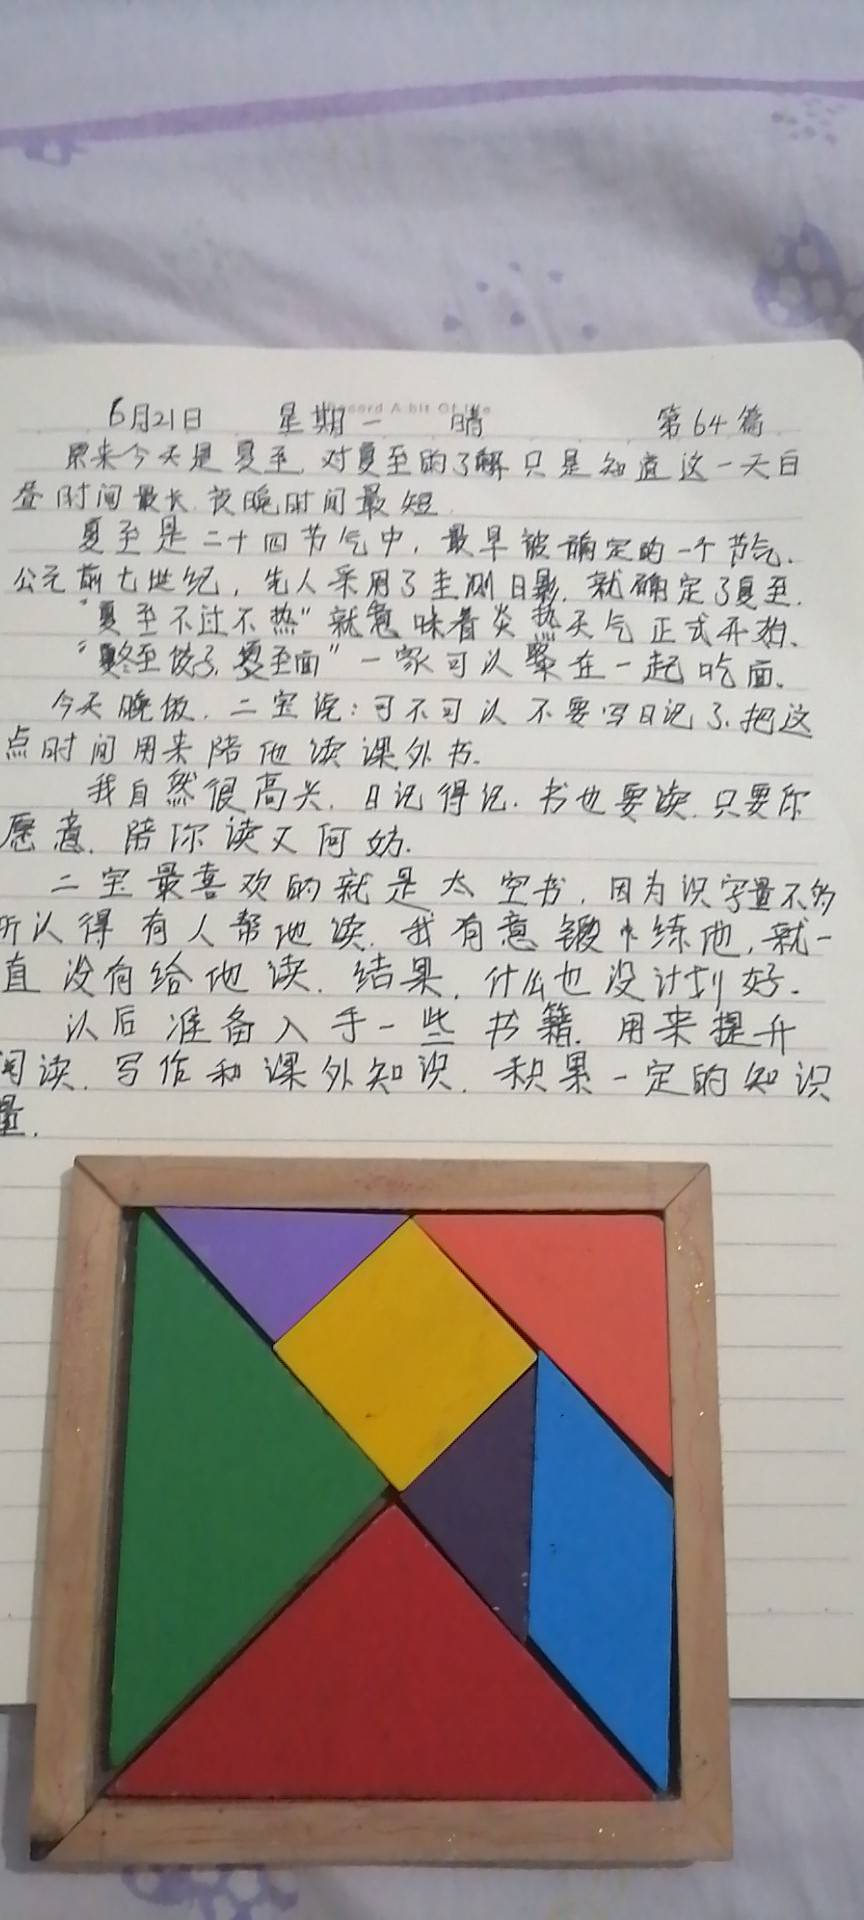 Record A bit Of life
6月21日 星期一 晴 第64篇
原来今天是夏至,对夏至的了解只是知道这一天白
昼时间最长,夜晚时间最短.
夏至是二十四节气中,最早被确定的一个节气.
公元前七世纪,先人采用了圭测日影,就确定了夏至.
"夏至不过不热"就意味着炎热天气正式开始、
"冬至饺子,夏至面"一家可以聚在一起吃面.
今天晚饭,二宝说:可不可以不要写日记了,把这
点时间用来陪他读课外书.
我自然很高兴,日记得记.书也要读,只要你
愿意,陪你读又何妨.
二宝最喜欢的就是太空书,因为识字量不够
所以得有人帮他读.我有意锻练他,就一
直没有给他读.结果,什么也没计划好.
以后准备入手一些书籍.用来提升
阅读.写作和课外知识.积累一定的知识
量.